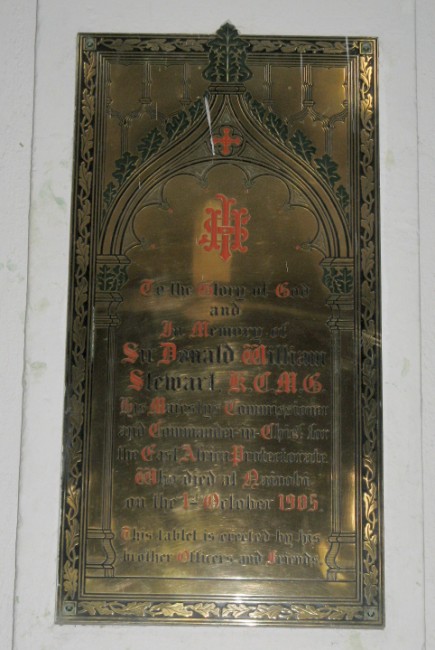 IHS
To the Glory of God
and
In Memory of
Sir Donald William
Stewart, K.C.M.G.
His Majesty's Commissioner
and Commander-in-Chief for
the East Africa Protectorate
Who died at Nairobi
on the 1st October 1905.
This tablet is erected by his
brother Officers and Friends.